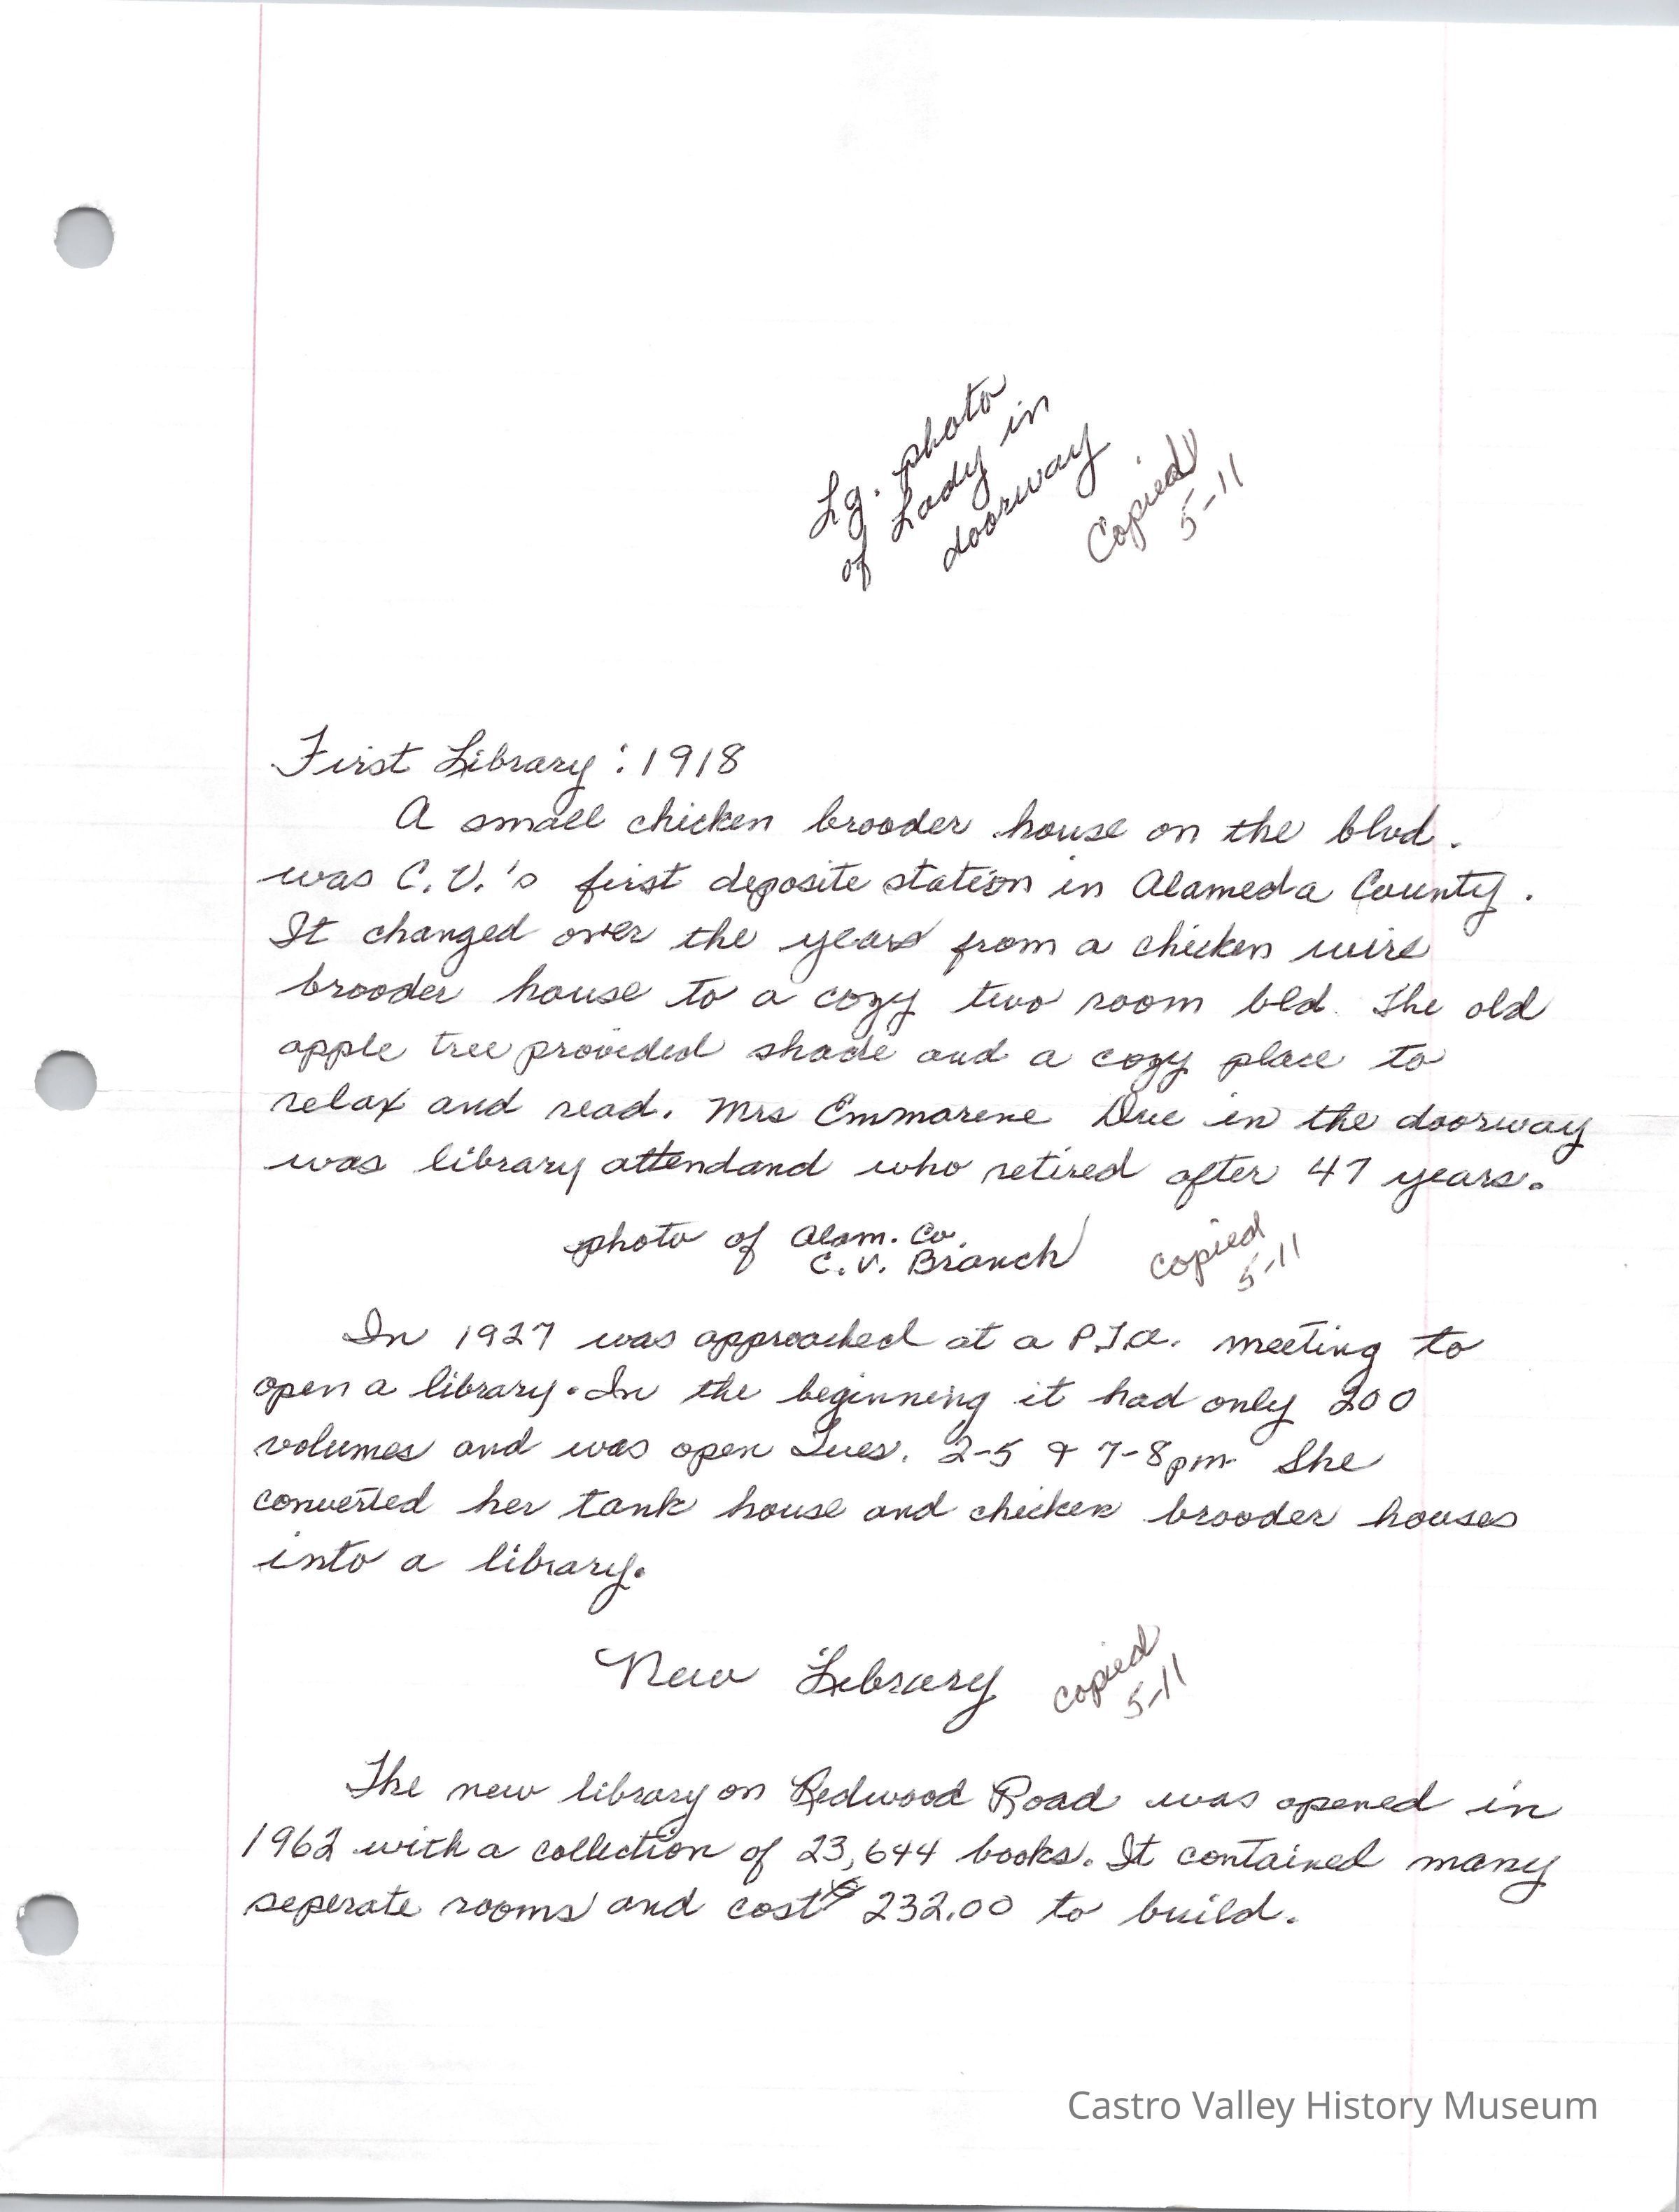 Lg. photo
of Lady in
doorway
Copied
5-11
First Library: 1918
A small chicken brooder house on the blvd.
was C.V.'s first deposite station in Alameda County.
It changed over the years from a chicken wire
brooder house to a cozy two room bld. The old
apple tree provided shade and a cozy place to
relax and read. Mrs Emmarene Due in the doorway
was library attendand who retired after 47 years.
photo of Alam. Co.
C.V. Branch
copied
5-11
In 1927 was approached at a P.T.A. meeting to
open a library. In the beginning it had only 200
volumes and was open Tues. 2-5 & 7-8pm She
converted her tank house and chicken brooder houses
into a library.
New Library
copied
5-11
The new library on Redwood Road was opened in
1962 with a collection of 23,644 books. It contained many
seperate rooms and cost $ 232.00 to build.
Castro Valley History Museum